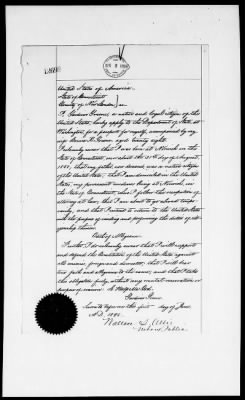 United States of America.
State of Connecticut
County of New London, ss.
I, Gardiner Greene, a native and loyal citizen of the
United States, hereby apply to the Department of State, at
Washington, for a passport for myself, accompanied by my
I solemnly swear that I was born at Norwich in the
State of Connecticut, on or about the 31st day of August,
that my father was a native citizen
of the United States; that I am domiciled in the United
States, my permanent residence being at Norwich, in
the State of Connecticut, where I follow the occupation of
attorney at law; that I am about to go abroad tempo-
rarily, and that I intend to return to the United States
with the purpose of residing and performing the duties of citi-
zenship therein.
Oath of Allegiance
Further I do solemnly swear that I will support
and defend the Constitution of the United States against
all enemies, foreign and domestic; that I will bear
true faith and allegiance to the same; and that I take
this obligation freely, without any mental reservation or
purpose of evasion: So help me God.
Sworn to before me this first day of June
A.D. 189
Notary Public